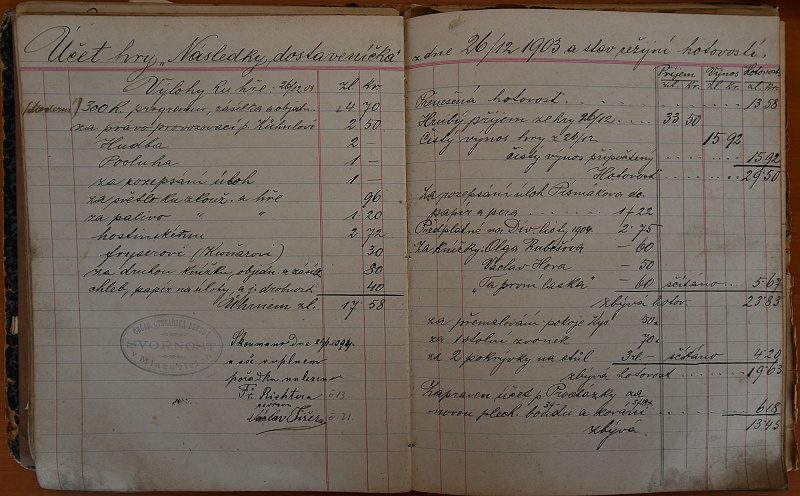 Účet hry „Následky dostaveníčka“
z dne 26/12 1903 a stav režijní hotovosti.
Výlohy ku hře: 26/12 03 zl. kr.
300 K. programu, zásilka a objedn. 4 70
za právo provozovací p. Kühnlovi 2 50
Hudba 2 —
Posluha 1 —
za rozepsání úloh 1 —
za světlo ku zkouš. a hře 96
za palivo " " 1 20
hostinskému 2 72
fryserovi 30
za druhou knížku, objedn. a zásilk 80
chleb, papír na úlohy, a j. drobnosti 40
Úhrnem zl. 17 58
SVORNOST
Skoumáno dne
a vše v úplném
pořádku nalezeno
Fr. Richtera
Václav Fišera
č. 13
č. 21
Příjem Výnos Hotovost
zl. kr. zl. kr. zl. kr.
Přenešená hotovost 13 58
Hrubý příjem ze hry 26/12 33 50
Čistý výnos hry z 26/12 15 92
čistý výnos připočtený 15 92
Hotovost 29 50
Za rozepsání úloh Písmákova do.
papír a pera 1 22
Předplatné na Div. listy 1904 2 75
Za knížky: Olga Rubešova — 60
Václav Hora — 50
„Ta první láska“ — 60 sčítáno 5 67
zbývá hotov. 23 83
za přemalování pokoje 50
za 1 stolní zvonek 70
za 2 pokrývky na stůl 3 zl — sčítáno 4 20
zbývá hotovost 19 63
Zapraven účet p. Procházky za
novou plech. boudu a kování 6 18
zbývá 13 45